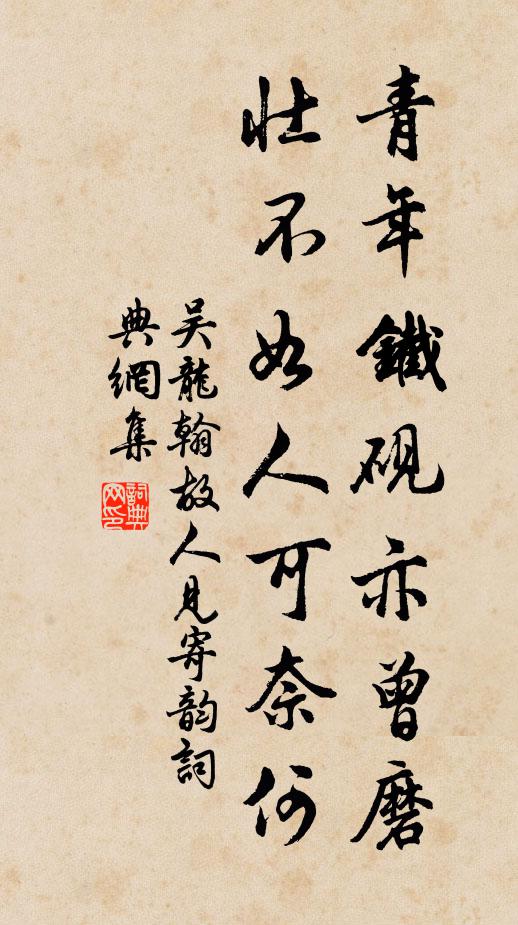 青年鐵硯亦曾磨
壯不如人可奈何
吴龍翰故人見寄韵詞
典網集
詞典
网印